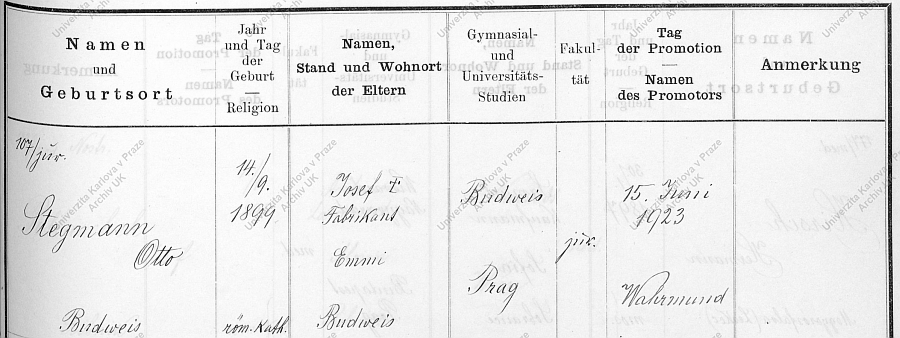 Namen
und
Geburtsort
Jahr
und Tag
der
Geburt
—
Religion
Namen,
Stand und Wohnort
der Eltern
Gymnasial-
und
Universitäts-
Studien
Fakul-
tät
Tag
der Promotion
—
Namen
des Promotors
Anmerkung
107/jur.
Stegmann
Otto
Budweis
14./
9.
1899
röm. kath.
Josef †
Fabrikant
Emmi
Budweis
Budweis
Prag
jur.
15. Juni
1923
Wahrmund
Univerzita Karlova v Praze
Archiv UK